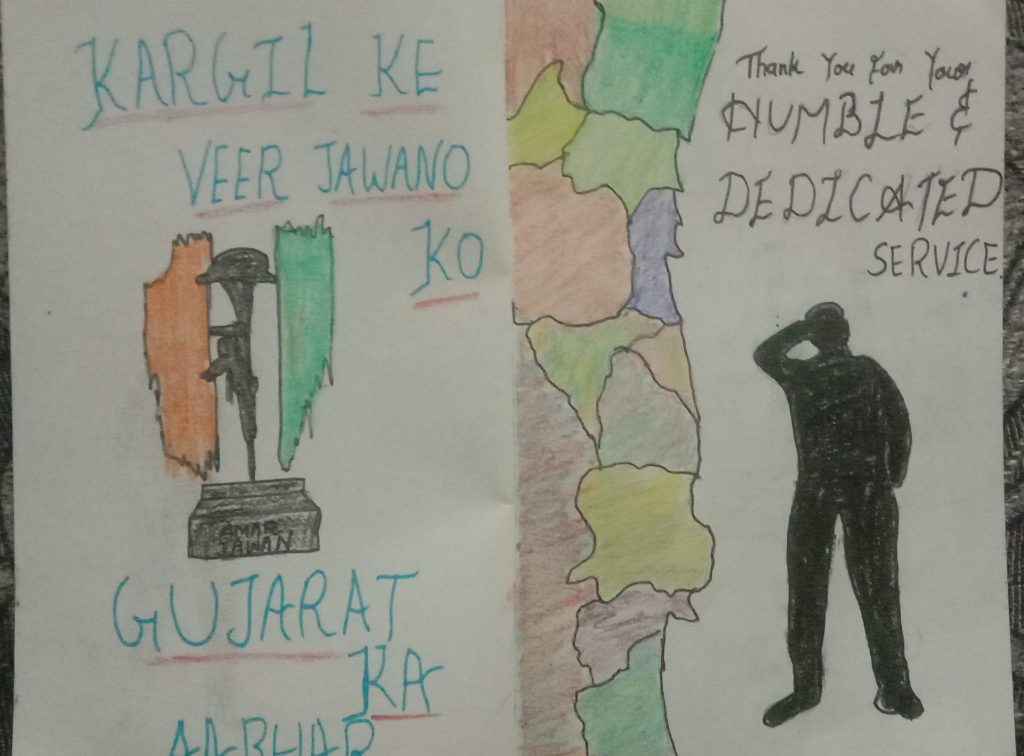 KARGIL KE
VEER JAWANO
KO
AMAR
JAWAN
GUJARAT
KA
AABHAR
Thank You For Your
HUMBLE &
DEDICATED
SERVICE.